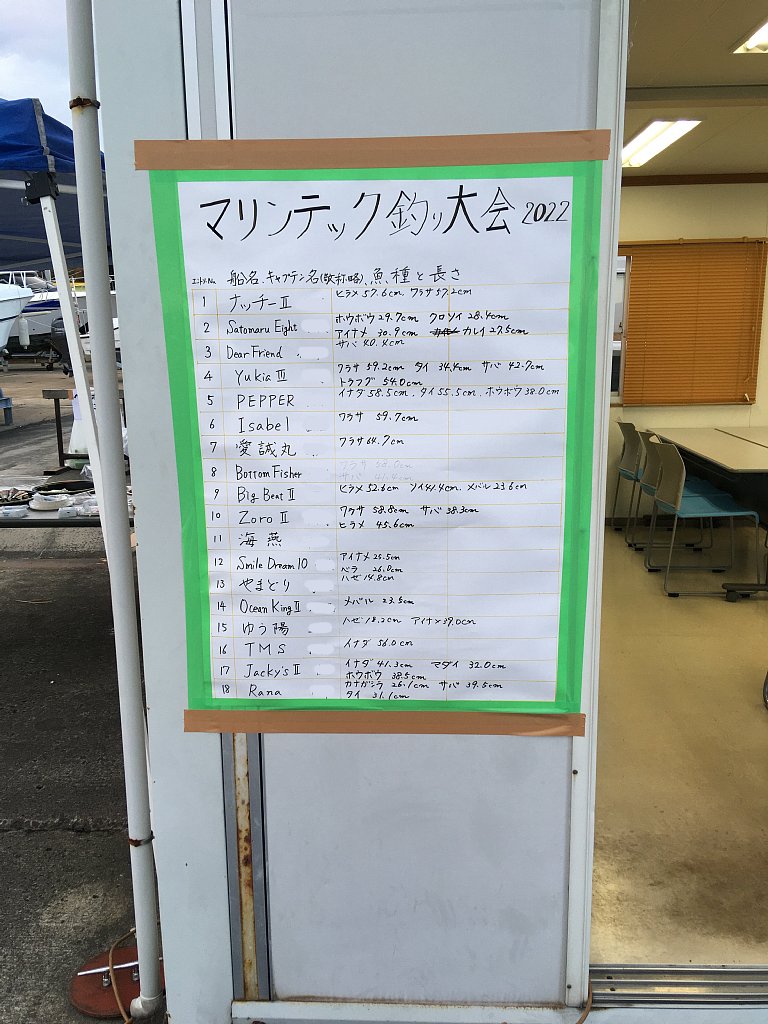 マリンテック釣り大会 2022
エントリーNo. 船名、キャプテン名(敬称略)、魚種と長さ
1 ナッチーII ヒラメ 57.6cm、ワラサ 57.2cm
2 Satomaru Eight ホウボウ 29.7cm クロソイ 28.4cm
アイナメ 30.9cm カレイ 27.5cm
3 Dear Friend サバ 40.4cm
4 Yukia III ワラサ 59.2cm タイ 34.4cm サバ 42.7cm
トラフグ 54.0cm
5 PEPPER イナダ 58.5cm、タイ 55.5cm、ホウボウ 38.0cm
6 Isabel ワラサ 59.7cm
7 愛誠丸 ワラサ 64.7cm
8 Bottom Fisher
9 Big Beat II ヒラメ 52.6cm ソイ 41.4cm、メバル 23.6cm
10 Zoro II ワラサ 58.8cm サバ 38.3cm
ヒラメ 45.6cm
11 海燕
12 Smile Dream 10 アイナメ 25.5cm
ベラ 26.0cm
13 やまどり ハゼ 14.8cm
14 Ocean King II メバル 23.5cm
15 ゆう陽 ハゼ 18.2cm アイナメ 39.0cm
16 TMS イナダ 56.0cm
17 Jacky's II イナダ 41.3cm マダイ 32.0cm
ホウボウ 38.5cm
18 Rana カナガシラ 26.1cm サバ 39.5cm
タイ 31.1cm